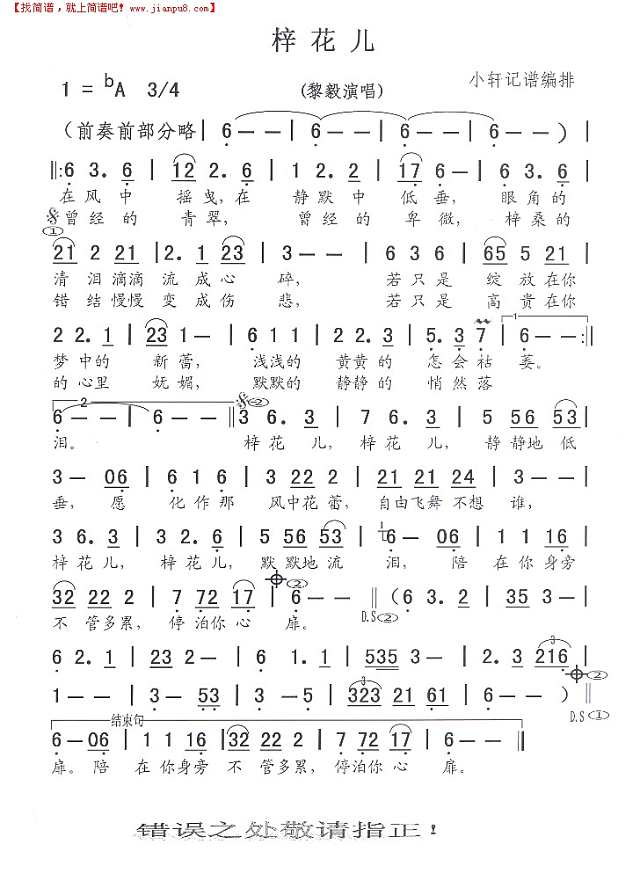 【找简谱，就上简谱吧!】
www.jianpu8.com
梓花儿
1 = ♭A 3/4
(黎毅演唱)
小轩记谱编排
（前奏前部分略| 6 — — | 6 — — | 6 — — | 6 — — ）|
‖: 6 3. 6 | 12 2. 6 | 1 2. 2 | 17 6 — |
在风中 摇曳,在 静默中 低垂, 眼角的
曾经的 青翠, 曾经的 卑微, 梓桑的
①
21 2 21 | 2. 1 23 | 3 — — | 6 3 6 | 65 5 21 |
清泪滴滴 流成心 碎, 若只是 绽放在你
错结慢慢 变成伤 悲, 若只是 高贵在你
2 2. 1 | 23 1 — | 6 1 1 | 2 2. 3 | 5. 3 7 | 6 — — :‖
1
梦中的 新蕾, 浅浅的 黄黄的 怎会祜 萎。
的心里 妩媚, 默默的 静静的 悄然落
2
②
6 — — | 6 — — ‖ 3 6. 3 | 7 6. 3 | 5 56 53 |
泪。 梓花儿, 梓花儿, 静静地低
3 — 06 | 6 1 6 | 3 22 2 | 21 21 24 |
垂, 愿 化作那 风中花蕾, 自由飞舞不想谁,
3 6. 3 | 3 6. 3 | 5 56 53 | 6 — 06 | 1 1 16 |
梓花儿, 梓花儿, 默默地流 泪, 陪 在你身旁
②
32 22 2 | 7 72 17 | 6 — — ‖ (6 3. 2 | 35 5 — |
不管多累, 停泊你心 扉。
D.S②
6 2. 1 | 23 2 — | 6 1 — | 535 5 — | 3 2 216 |
3
②
1 — — | 3 — 53 | 3 — 5 | 323 21 61 | 6 — — ) ‖
3
D.S①
结束句
6 — 06 | 1 1 16 | 32 22 2 | 7 72 17 | 6 — — ‖
扉。陪 在你身旁 不管多累, 停泊你心 扉。
错误之处敬请指正!